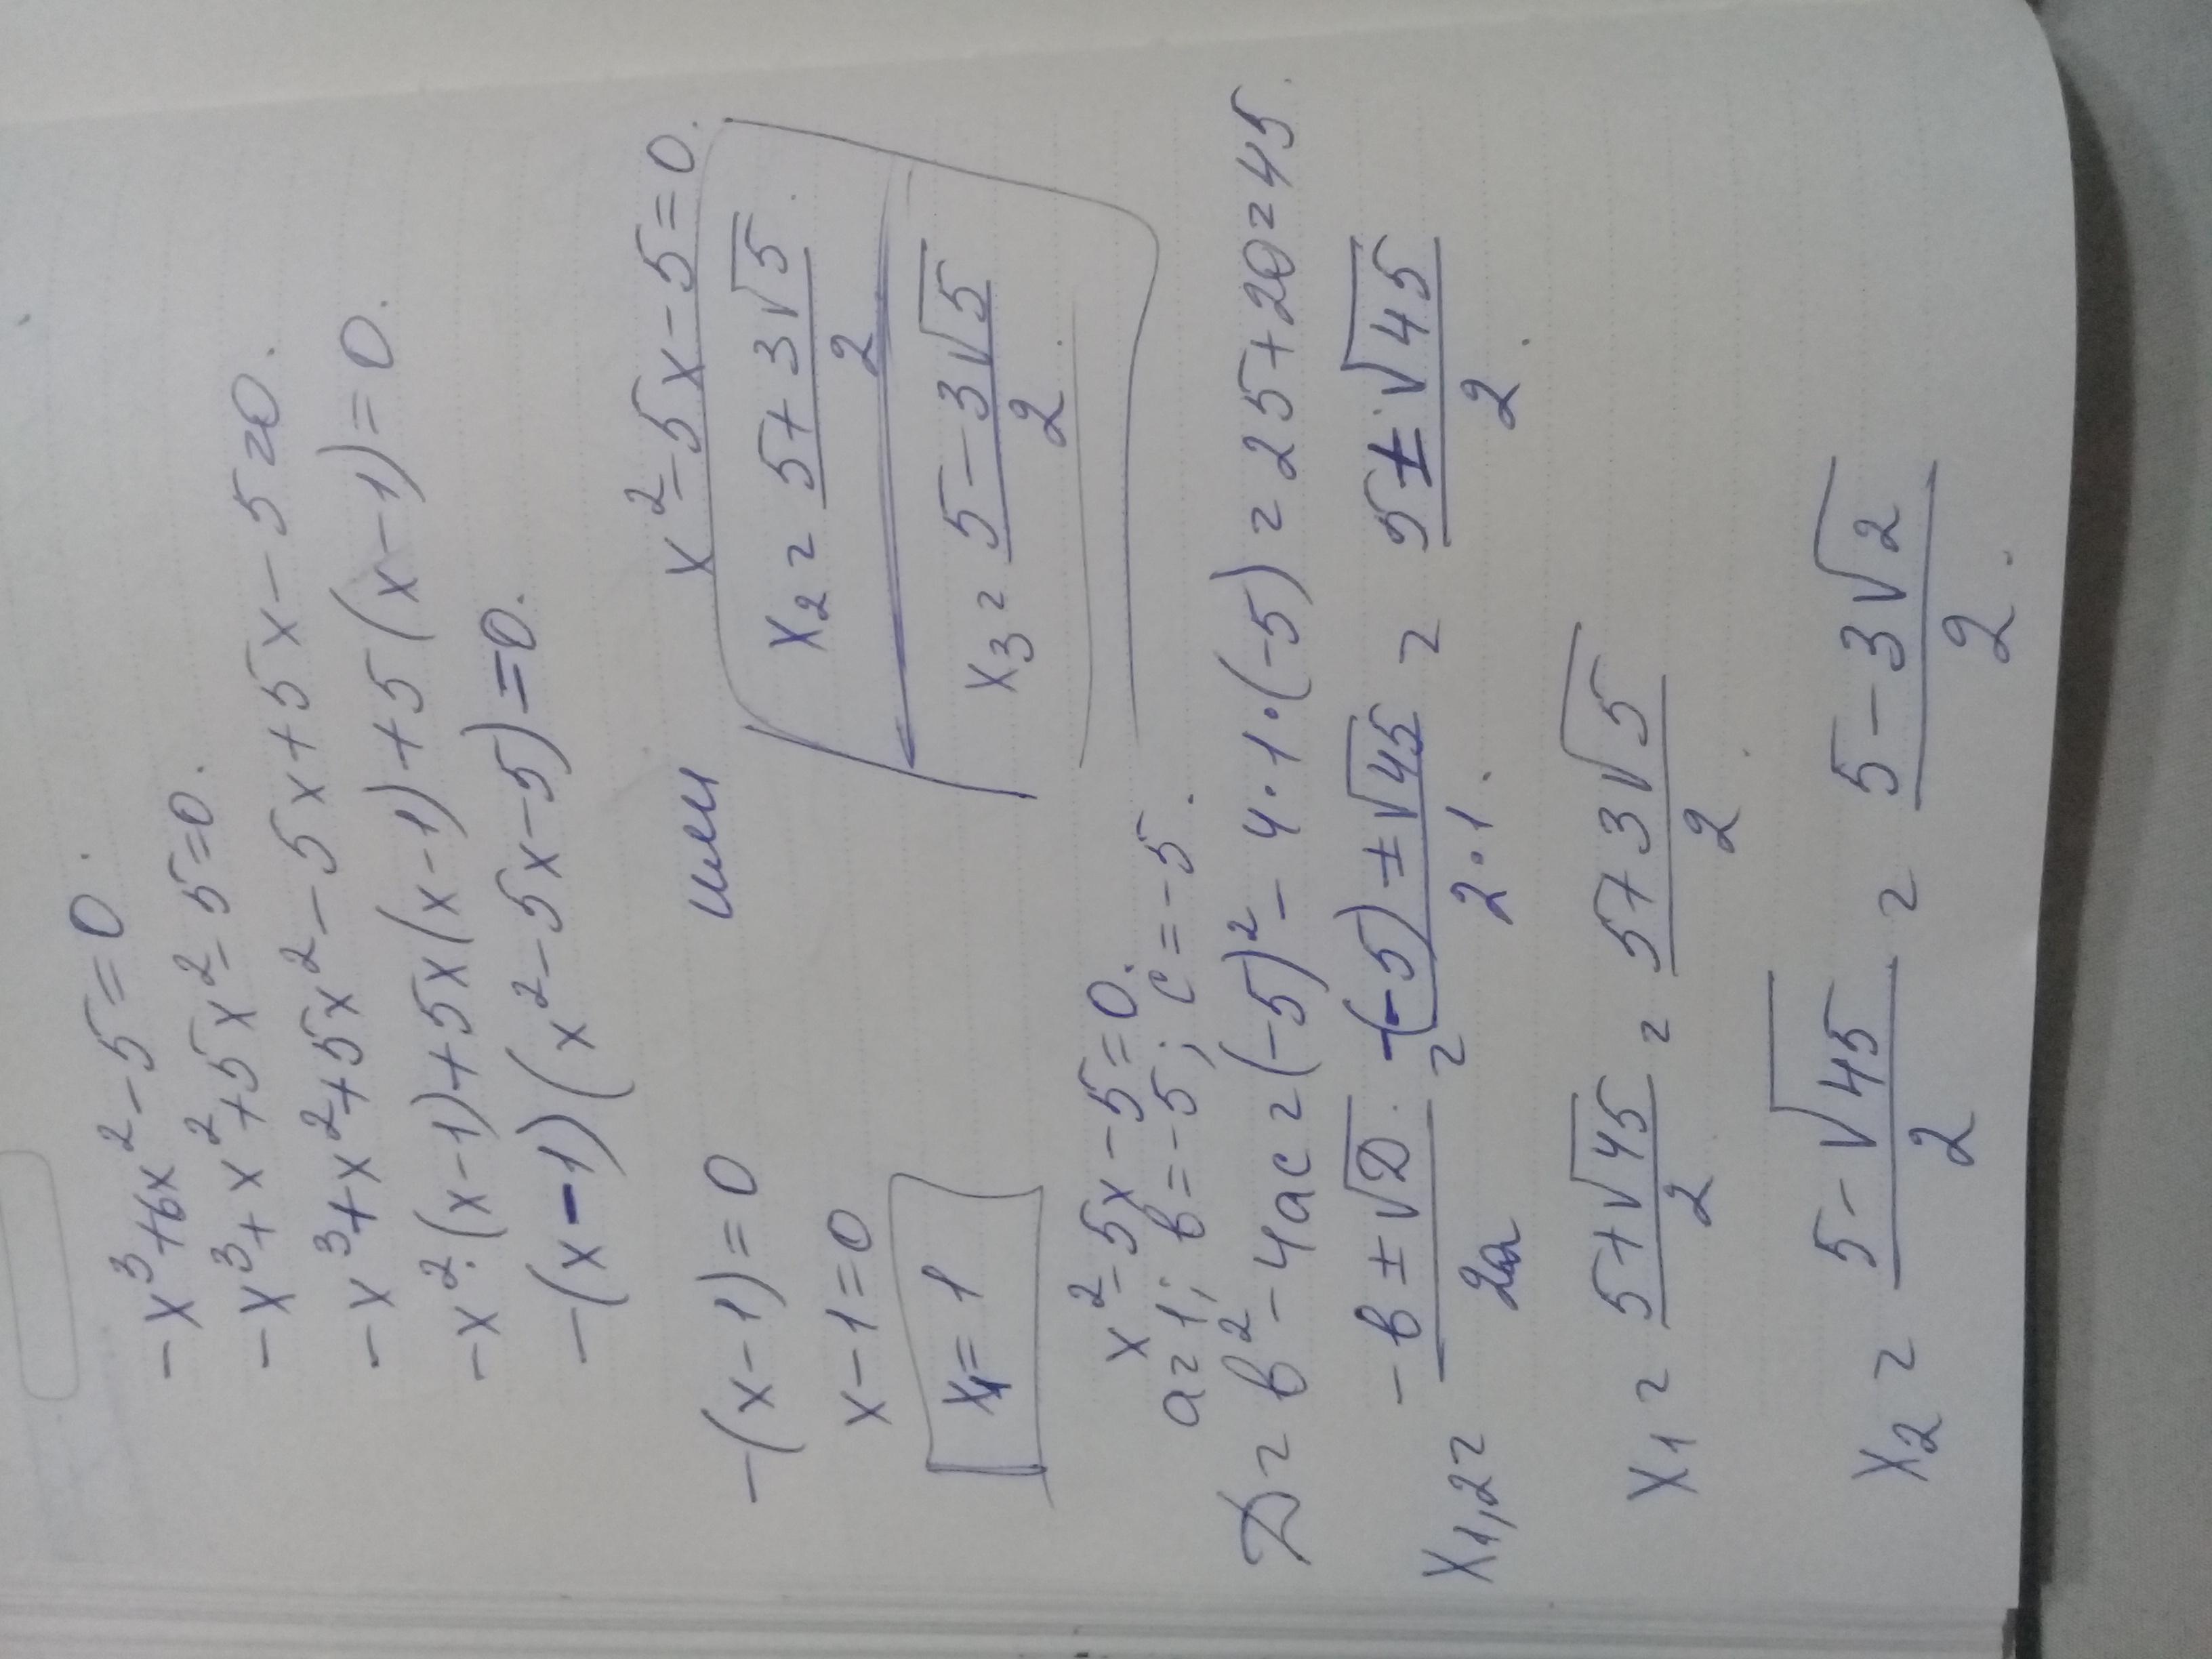 -x³+6x²-5=0.
-x³+x²+5x²-5=0.
-x³+x²+5x²-5x+5x-5=0.
-x²·(x-1)+5x(x-1)+5(x-1)=0.
-(x-1)(x²-5x-5)=0.
-(x-1)=0 или x²-5x-5=0.
x-1=0 x₂=(5+3√5)/2.
x₁=1 x₃=(5-3√5)/2.
x²-5x-5=0.
a=1; b=-5; c=-5.
D=b²-4ac=(-5)²-4·1·(-5)=25+20=45.
x₁,₂=(-b±√D)/2a=(-(-5)±√45)/2·1.=(5±√45)/2.
x₁=(5+√45)/2=(5+3√5)/2.
x₂=(5-√45)/2=(5-3√2)/2.